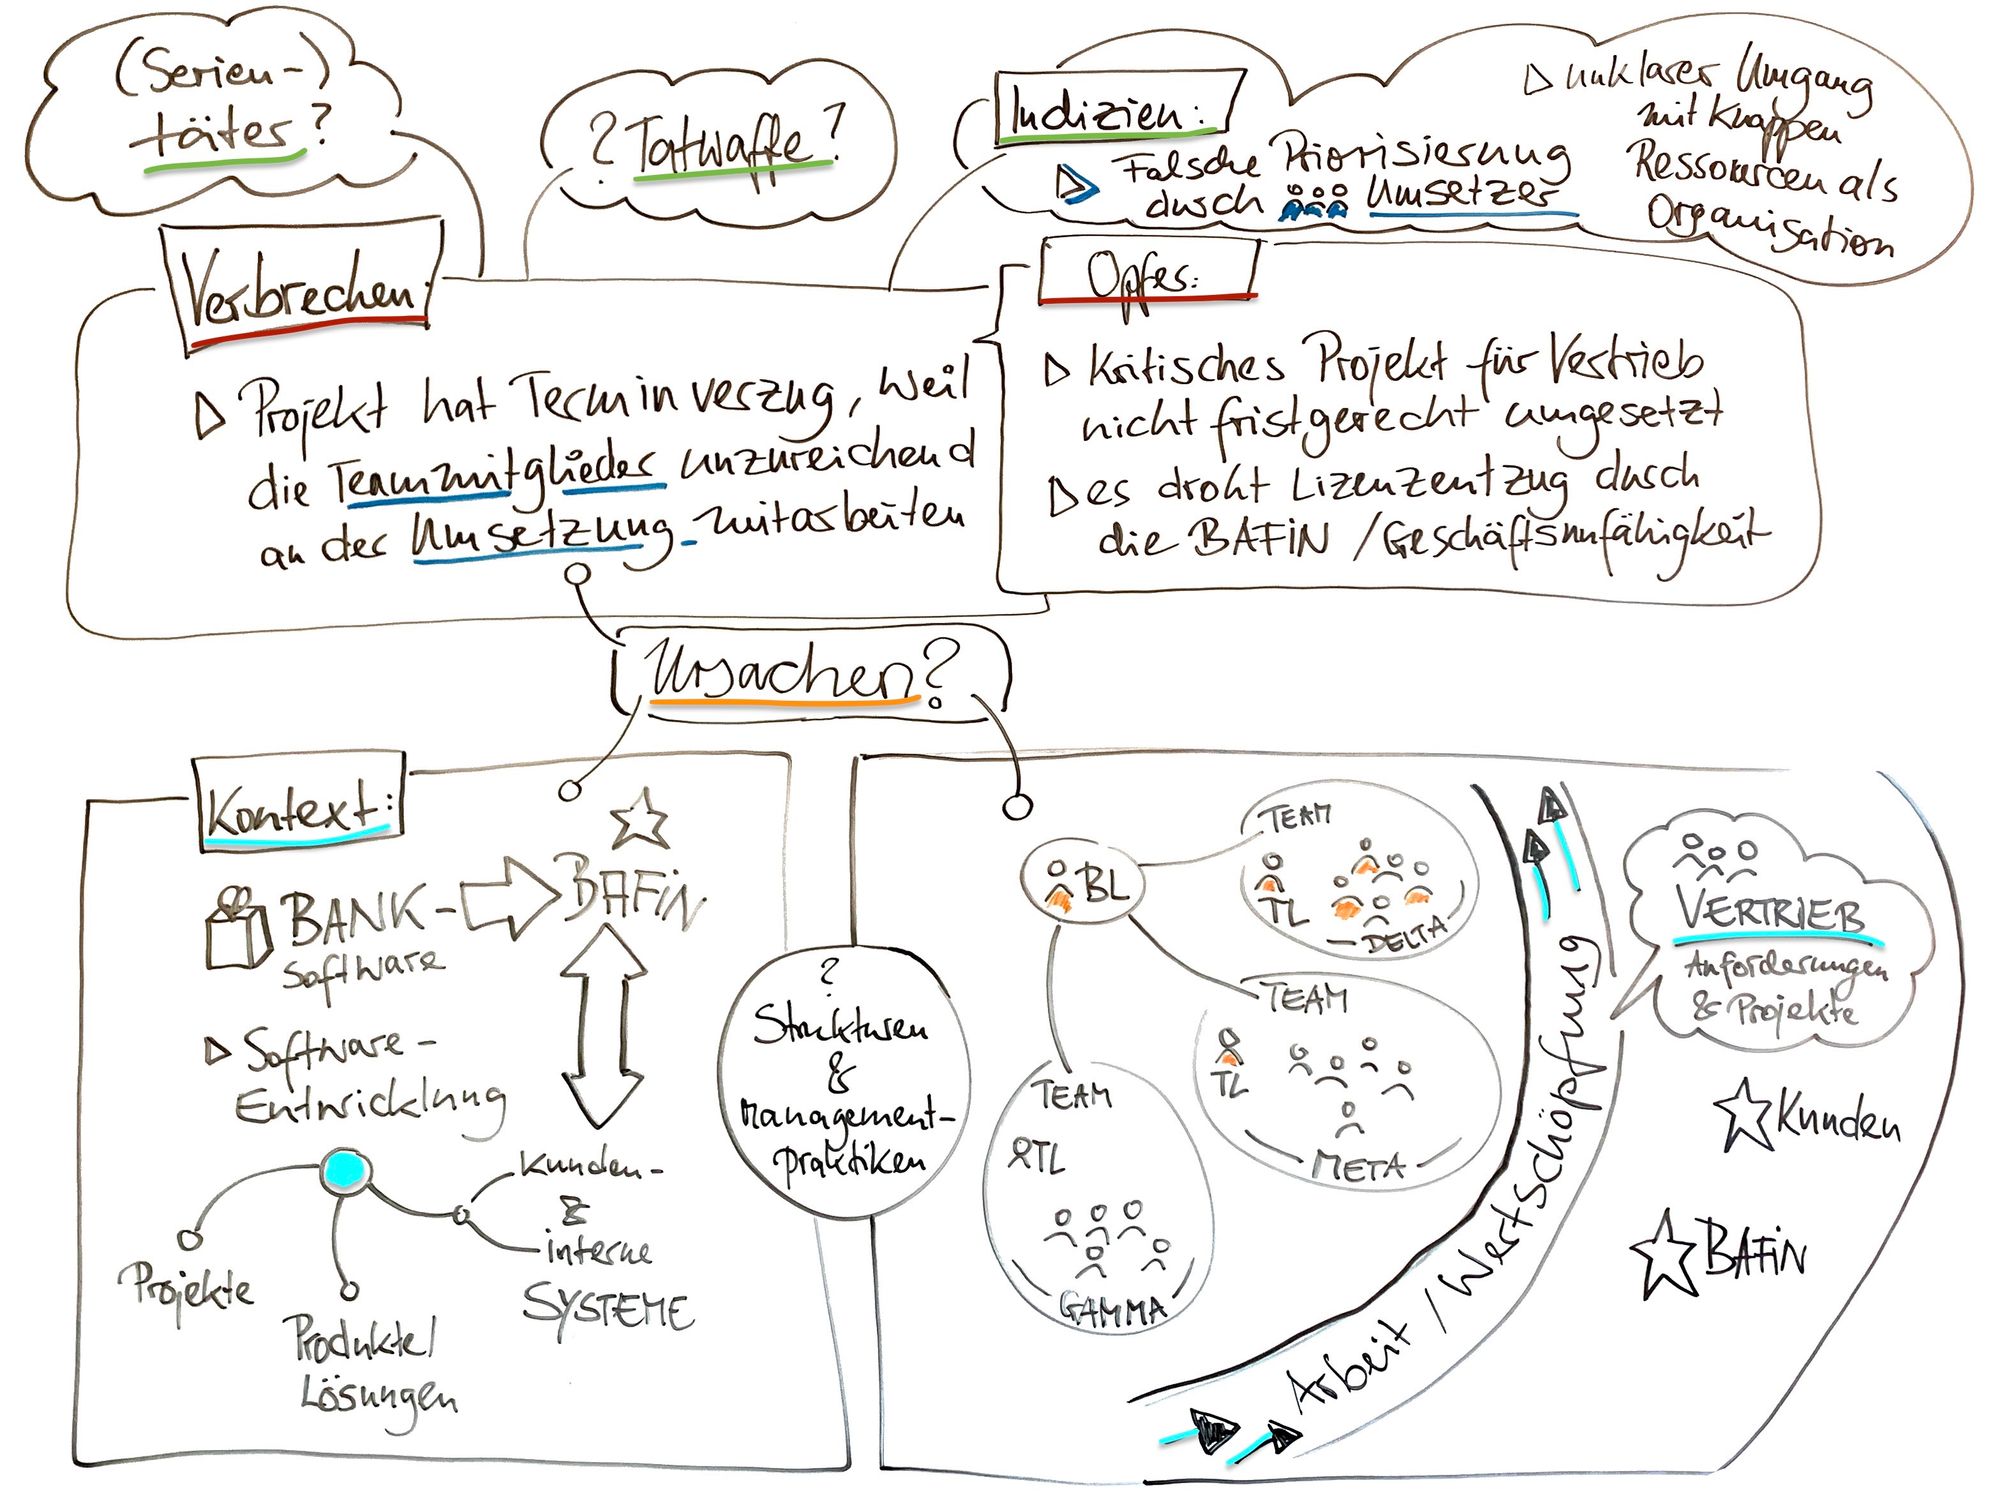 (Serien-)
täter?
? Tatwaffe?
Indizien:
Falsche Priorisierung
durch Umsetzer
unklarer Umgang
mit knappen
Ressourcen als
Organisation
Verbrechen:
Projekt hat Terminverzug, weil
die Teammitglieder unzureichend
an der Umsetzung mitarbeiten
Opfer:
Kritisches Projekt für Vertrieb
nicht fristgerecht umgesetzt
es droht Lizenzentzug durch
die BAFiN / Geschäftsunfähigkeit
Ursachen?
Kontext:
BANK-
Software
BAFiN
Software-
Entwicklung
Projekte
Produkte/
Lösungen
Kunden-
&
interne
SYSTEME
?
Strukturen
&
Management-
praktiken
BL
TEAM
TL
DELTA
TEAM
TL
META
TEAM
TL
GAMMA
Arbeit / Wertschöpfung
VERTRIEB
Anforderungen
& Projekte
Kunden
BAFiN